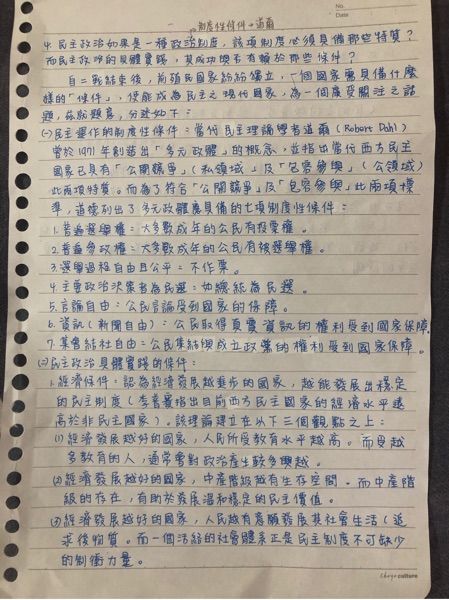 No.
Date
制度性條件→道爾
4.民主政治如果是一種政治制度,該項制度必須具備那些特質?
而民主政治的具體實踐,其成功與否有賴於那些條件?
自二戰結束後,前殖民國家紛紛獨立,一個國家需具備什麼
樣的「條件」,使能成為民主之現代國家,為一個廣受關注之話
題,茲就題意,分述如下:
㈠民主運作的制度性條件:當代民主理論學者道爾(Robert Dahl)
曾於1971年創造出「多元政體」的概念,並指出當代西方民主
國家已具有「公開競爭」(私領域)及「包容參與」(公領域)
此兩項特質。而為了符合「公開競爭」及「包容參與」此兩項標
準,道爾列出了多元政體應具備的七項制度性條件:
1.普遍選舉權:大多數成年的公民有投票權。
2.普遍參政權:大多數成年的公民有被選舉權。
3.選舉過程自由且公平:不作票。
4.主要政治決策者為民選:如總統為民選。
5.言論自由:公民言論受到國家的保障。
6.資訊(新聞自由):公民取得真實資訊的權利受到國家保障。
7.集會結社自由:公民集結與成立政黨的權利受到國家保障。
㈡民主政治具體實踐的條件:
1.經濟條件:認為經濟發展越進步的國家,越能發展出穩定
的民主制度(李普曼指出目前西方民主國家的經濟水平遠
高於非民主國家)。該理論建立在以下三個觀點之上:
⑴經濟發展越好的國家,人民所受教育水平越高。而受越
多教育的人,通常會對政治產生較多興趣。
⑵經濟發展越好的國家,中產階級越有生存空間。而中產階
級的存在,有助於發展溫和穩定的民主價值。
⑶經濟發展越好的國家,人民越有意願發展其社會生活(追
求後物質)。而一個活絡的社會體系正是民主制度不可缺少
的制衡力量。
culture